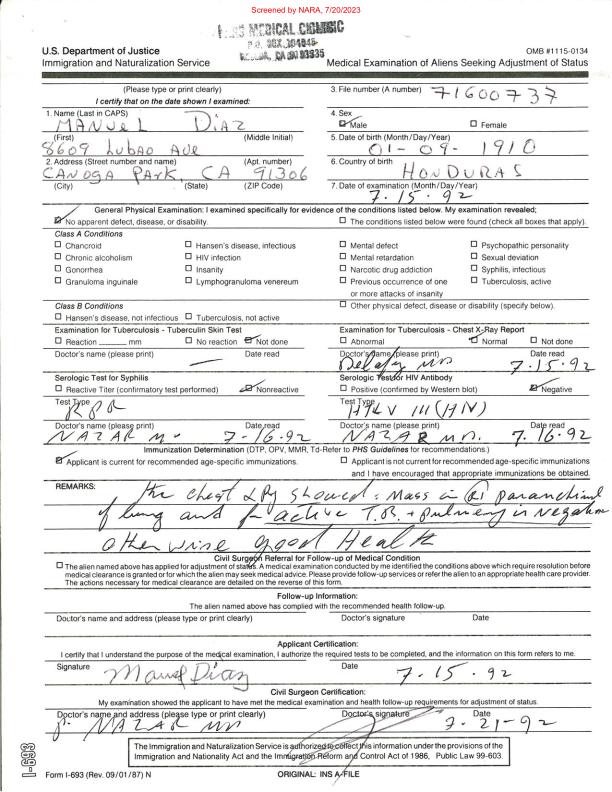 Screened by NARA, 7/20/2023
MEDICAL CLINIC
P.O. BOX
U.S. Department of Justice OMB #1115-0134
Immigration and Naturalization Service Medical Examination of Aliens Seeking Adjustment of Status
(Please type or print clearly) 3. File number (A number) 71600737
I certify that on the date shown I examined:
1. Name (Last in CAPS) 4. Sex
MANUEL DIAZ ☑ Male ☐ Female
(First) (Middle Initial) 5. Date of birth (Month/Day/Year)
8609 Lubao Ave 01-09-1910
2. Address (Street number and name) (Apt. number) 6. Country of birth
CANOGA PARK, CA 91306 HONDURAS
(City) (State) (ZIP Code) 7. Date of examination (Month/Day/Year)
7.15.92
General Physical Examination: I examined specifically for evidence of the conditions listed below. My examination revealed;
☑ No apparent defect, disease, or disability. ☐ The conditions listed below were found (check all boxes that apply).
Class A Conditions
☐ Chancroid ☐ Hansen's disease, infectious ☐ Mental defect ☐ Psychopathic personality
☐ Chronic alcoholism ☐ HIV infection ☐ Mental retardation ☐ Sexual deviation
☐ Gonorrhea ☐ Insanity ☐ Narcotic drug addiction ☐ Syphilis, infectious
☐ Granuloma inguinale ☐ Lymphogranuloma venereum ☐ Previous occurrence of one ☐ Tuberculosis, active
or more attacks of insanity
Class B Conditions ☐ Other physical defect, disease or disability (specify below).
☐ Hansen's disease, not infectious ☐ Tuberculosis, not active
Examination for Tuberculosis - Tuberculin Skin Test Examination for Tuberculosis - Chest X-Ray Report
☐ Reaction ______ mm ☐ No reaction ☑ Not done ☐ Abnormal ☑ Normal ☐ Not done
Doctor's name (please print) Date read Doctor's name (please print) Date read
MD 7-15-92
Serologic Test for Syphilis Serologic Test for HIV Antibody
☐ Reactive Titer (confirmatory test performed) ☑ Nonreactive ☐ Positive (confirmed by Western blot) ☑ Negative
Test Type Test Type
RPR HTLV III (HIV)
Doctor's name (please print) Date read Doctor's name (please print) Date read
NAZAR MD 7-16-92 NAZAR MD. 7.16-92
Immunization Determination (DTP, OPV, MMR, Td-Refer to PHS Guidelines for recommendations.)
☑ Applicant is current for recommended age-specific immunizations. ☐ Applicant is not current for recommended age-specific immunizations
and I have encouraged that appropriate immunizations be obtained.
REMARKS: The chest showed: Mass in
of lung and active T.B.
otherwise good Health
Civil Surgeon Referral for Follow-up of Medical Condition
☐ The alien named above has applied for adjustment of status. A medical examination conducted by me identified the conditions above which require resolution before
medical clearance is granted or for which the alien may seek medical advice. Please provide follow-up services or refer the alien to an appropriate health care provider.
The actions necessary for medical clearance are detailed on the reverse of this form.
Follow-up Information:
The alien named above has complied with the recommended health follow-up.
Doctor's name and address (please type or print clearly) Doctor's signature Date
Applicant Certification:
I certify that I understand the purpose of the medical examination, I authorize the required tests to be completed, and the information on this form refers to me.
Signature Date
Manuel Diaz 7.15.92
Civil Surgeon Certification:
My examination showed the applicant to have met the medical examination and health follow-up requirements for adjustment of status.
Doctor's name and address (please type or print clearly) Doctor's signature Date
NAZAR MD 7-21-92
The Immigration and Naturalization Service is authorized to collect this information under the provisions of the
Immigration and Nationality Act and the Immigration Reform and Control Act of 1986, Public Law 99-603.
I-693
Form I-693 (Rev. 09/01/87) N ORIGINAL: INS A-FILE